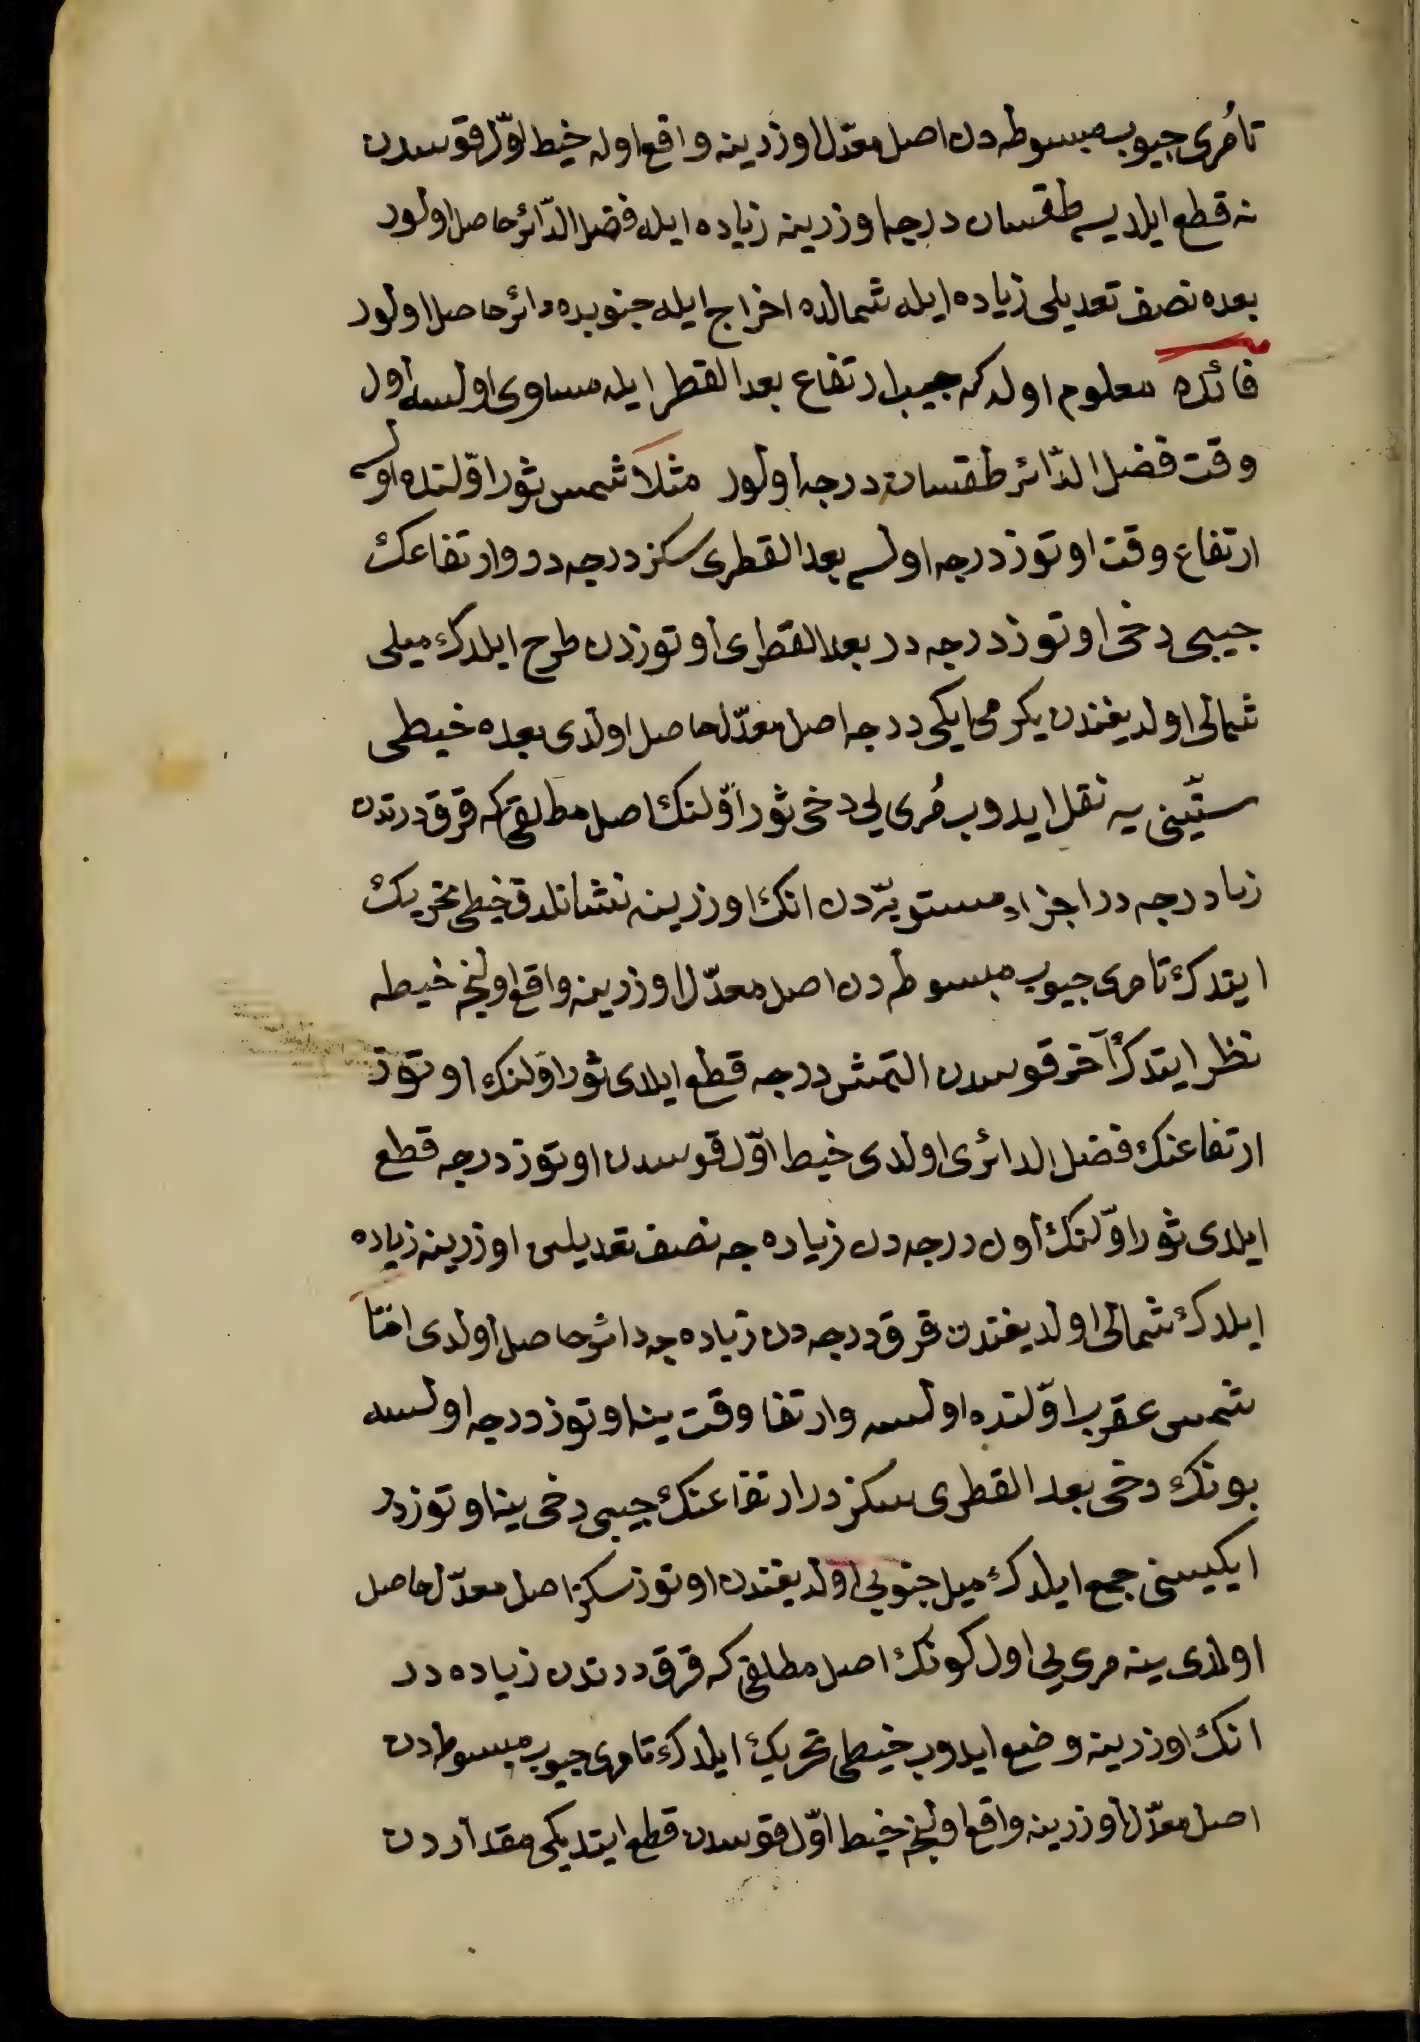 تا مُری جیوب مبسوطه دن اصل معدّل اوزرینه واقع اوله خیط اوّل قوسدن
نه قطع ایلدیسه طقسان درجه اوزرینه زیاده ایله فضل الدّائر حاصل اولور
بعده نصف تعدیلی زیاده ایله شمالده اخراج ایله جنوبده دائر حاصل اولور
فائده معلوم اوله که جیب ارتفاع بعد القطر ایله مساوی اولسه اول
وقت فضل الدّائر طقسان درجه اولور مثلا شمس ثور اوّلنده اولسه
ارتفاع وقت اوتوز درجه اولسه بعد القطری سکز درجه در و ارتفاعک
جیبی دخی اوتوز درجه در بعد القطری اوتوزدن طرح ایلدک میلی
شمالی اولدیغندن یکرمی ایکی درجه اصل معدّل حاصل اولدی بعده خیطی
ستّینی یه نقل ایدوب مُری یی دخی ثور اوّلنک اصل مطلقی که قرق درتدن
زیاد درجه در اجزاء مستویّه دن انک اوزرینه نشانلدق خیطی تحریک
ایتدک تا مری جیوب مبسوطه دن اصل معدّل اوزرینه واقع اولنجه خیطه
نظر ایتدک آخر قوسدن التمش درجه قطع ایلدی ثور اوّلنک اوتوز
ارتفاعنک فضل الدائری اولدی خیط اوّل قوسدن اوتوز درجه قطع
ایلدی ثور اوّلنک اون درجه دن زیاده جه نصف تعدیلی اوزرینه زیاده
ایلدک شمالی اولدیغندن قرق درجه دن زیاده جه دائر حاصل اولدی امّا
شمس عقرب اوّلنده اولسه و ارتفا وقت ینه اوتوز درجه اولسه
بونک دخی بعد القطری سکز در ارتفاعنک جیبی دخی ینه اوتوز در
ایکیسنی جمع ایلدک میل جنوبی اولدیغندن اوتوز سکز اصل معدّل حاصل
اولدی ینه مری یی اول کونک اصل مطلقی که قرق درتدن زیاده در
انک اوزرینه وضع ایدوب خیطی تحریک ایلدک تا مری جیوب مبسوطه دن
اصل معدّل اوزرینه واقع اولنجه خیط اوّل قوسدن قطع ایتدیکی مقداردن